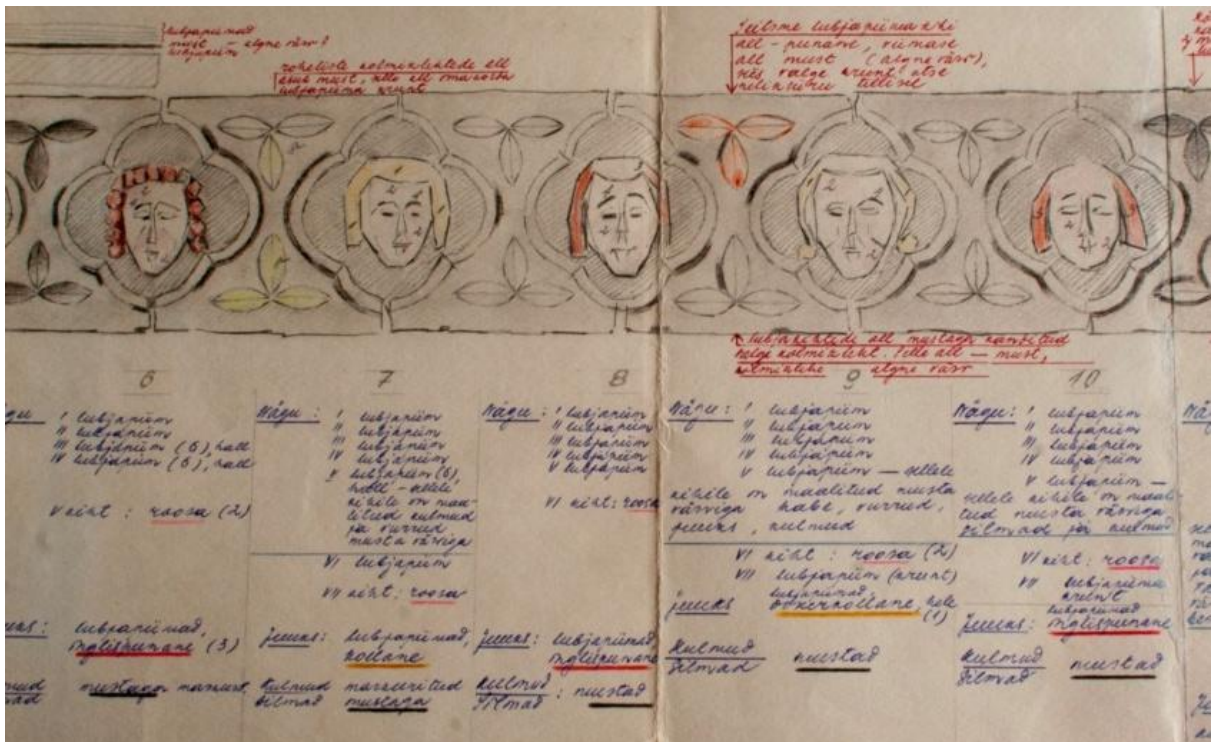 lubjapiimad
must — algne värv?
lubjapiim
roheliste kolmiklehtede all
asub must, selle all omakorda
lubjapiima krunt
Seitsme lubjapiimakihi
all - punane, viimase
all must (algne värv),
siis valge krunt otse
tellisel
lubjakihtide all mustaga kandilised
kolmikleht. Selle all — must,
kolmiklehe algne värv
6
7
8
9
10
Nägu I lubjapiim
II lubjapiim
III lubjapiim (5), hall
IV lubjapiim (5), hall
V kiht : roosa (2)
lubjapiimad,
inglispunane (3)
mustaga
Nägu : I lubjapiim
II lubjapiim
III lubjapiim
IV lubjapiim
V lubjapiim (5),
hall - sellele
kihile on maa-
litud kulmud
ja vurrud
musta värviga
VI lubjapiim
VII kiht : roosa
juuks : lubjapiimad,
kollane
Kulmud markeeritud
Silmad mustaga
Nägu : I lubjapiim
II lubjapiim
III lubjapiim
IV lubjapiim
V lubjapiim
VI kiht : roosa
juuks : lubjapiimad
inglispunane
Kulmud
Silmad : mustad
Nägu : I lubjapiim
II lubjapiim
III lubjapiim
IV lubjapiim
V lubjapiim — sellele
kihile on maalitud musta
värviga habe, vurrud,
juuks, kulmud
VI kiht : roosa (2)
VII lubjapiim (krunt)
lubjapiimad,
juuks ookerkollane, hele
(1)
Kulmud
Silmad mustad
Nägu : I lubjapiim
II lubjapiim
III lubjapiim
IV lubjapiim
V lubjapiim —
sellele kihile on maali-
tud musta värviga
silmad ja kulmud
VI kiht : roosa
VII lubjapiima
krunt
lubjapiimad
juuks : inglispunane
Kulmud
Silmad mustad